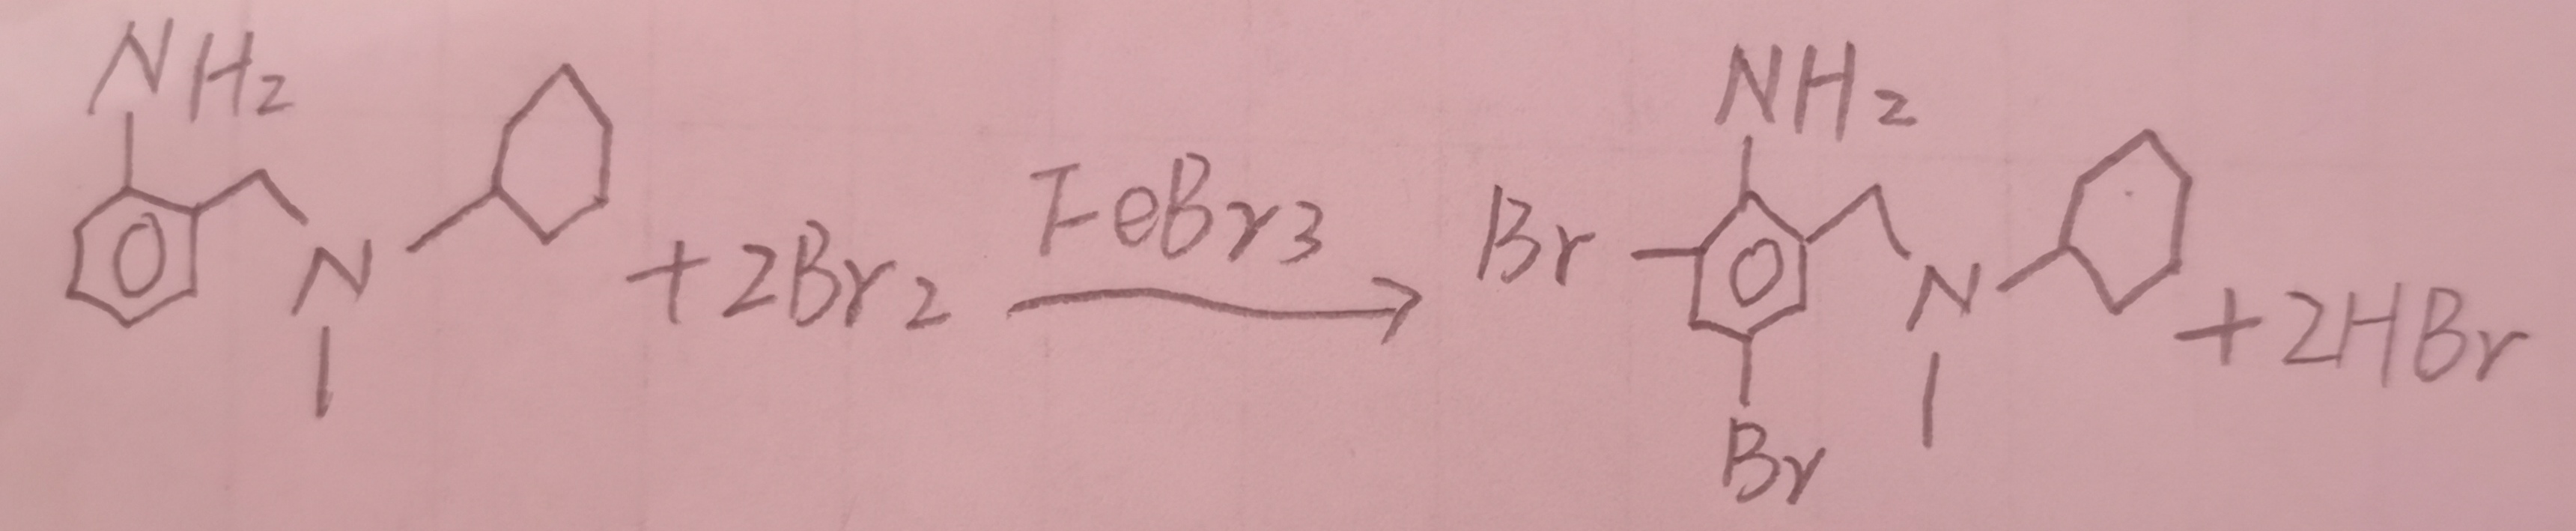 NH₂ N + 2Br₂ FeBr₃ → Br NH₂ Br N + 2HBr